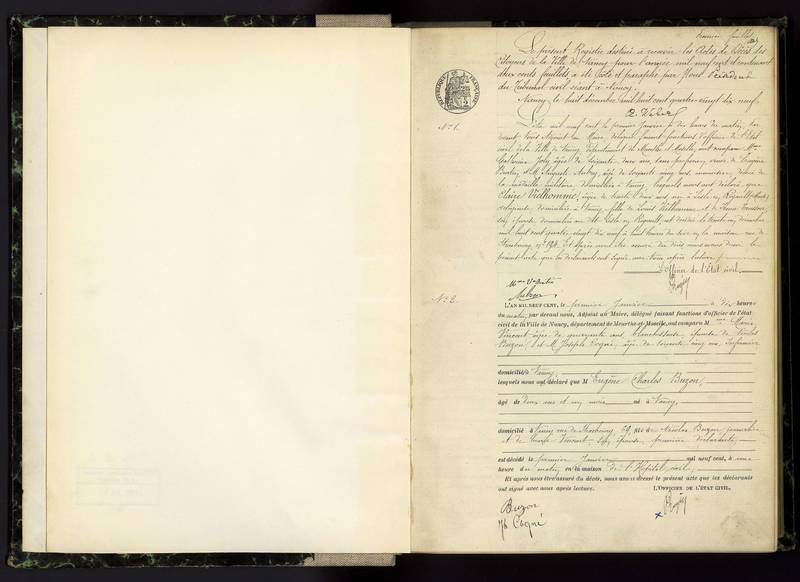 Premier feuillet
Le présent Registre destiné à recevoir les Actes de Décès des
Citoyens de la Ville de Nancy pour l'année mil neuf cent et contenant
deux cents feuillets a été coté et paraphé par Nous Président
du Tribunal civil séant à Nancy.
Nancy, le huit décembre mil huit cent quatre vingt dix neuf.
RÉPUBLIQUE FRANÇAISE
N° 1.
L'an mil neuf cent le premier Janvier à dix heures du matin, par
devant Nous Adjoint au Maire, délégué faisant fonctions d'officier de l'Etat
civil de la Ville de Nancy, département de Meurthe et Moselle, ont comparu Mme
Catherine Joly, âgée de soixante deux ans, sans profession,
et M. Auguste Aubry, âgé de soixante cinq ans,
la médaille militaire domiciliés à Nancy, lesquels nous ont déclaré que
Claire Vielhomme, âgée de trente deux ans, née à
domiciliée à Nancy, fille de Louis Vielhomme et de
son épouse domiciliés au dit est décédée le trente un décembre
mil huit cent quatre vingt dix neuf à huit heures du soir en la maison rue de
Strasbourg n° Et après nous être assuré du décès nous avons dressé le
présent acte que les déclarants ont signé avec nous après lecture
L'officier de l'Etat civil.
Aubry
N° 2.
L'AN MIL NEUF CENT, le premier Janvier à dix heures
du matin, par devant nous, Adjoint au Maire, délégué faisant fonctions d'officier de l'état
civil de la Ville de Nancy, département de Meurthe-et-Moselle, ont comparu M me Marie
Vincent âgée de quarante ans blanchisseuse épouse de Nicolas
Buzon, et M. Joseph Cogné, âgé de soixante cinq ans, infirmier
domiciliés à Nancy,
lesquels nous ont déclaré que M Eugène Charles Buzon,
âgé de deux ans et un mois né à Nancy,
domicilié à Nancy rue de Strasbourg 59, fils de Nicolas Buzon journalier
et de Marie Vincent, son épouse, première déclarante,
est décédé le premier Janvier mil neuf cent, à une
heure du matin, en la maison de l'Hôpital civil,
Et après nous être assuré du décès, nous avons dressé le présent acte que les déclarants
ont signé avec nous après lecture. L'OFFICIER DE L'ÉTAT CIVIL,
Buzon
Jh Cogné